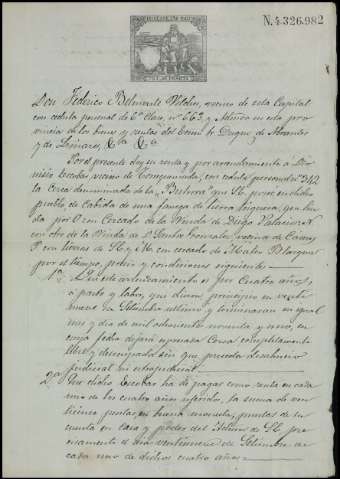 N. 4.326.982
Don Federico Belmonte Vilches, vecino de esta Capital
con cedula personal de 6ª clase, nº 663 y Admor en esta pro
vincia de los bienes y rentas del Exmo Sr. Duque de Abrantes
y de Linares, &ª &ª
Por el presente doy en renta y por arrendamiento a Dio
nisio Escobar, vecino de con cedula personal nº 342
la Cerca denominada de la que S.E. posee en dicho
pueblo de Cabida de una fanega de tierra que lin
da por O con Cercado de la Viuda de Diego
con otro de la Viuda de D. Gonzalez, vecina de
P. con tierras de S.E. y M. con cercado de Blazquez
por el tiempo, precio y condiciones siguientes
1ª Que este arrendamiento es por Cuatro años,
a pasto y labor, que dieron principio en veinte
nueve de Setiembre ultimo y terminaran en igual
mes y dia de mil ochocientos noventa y seis, en
cuya fecha dejará espresada Cerca completamente
libre y desocupada sin que preceda deshaucio
judicial ni estrajudicial
2ª Que dicho Escobar ha de pagar como renta en cada
uno de los cuatro años referidos, la suma de vein
ticinco pesetas, en buena moneda, puestas de su
cuenta en casa y poder del Admor de S.E. pre
cisamente el dia veintinueve de Setiembre de
cada uno de dichos cuatro años